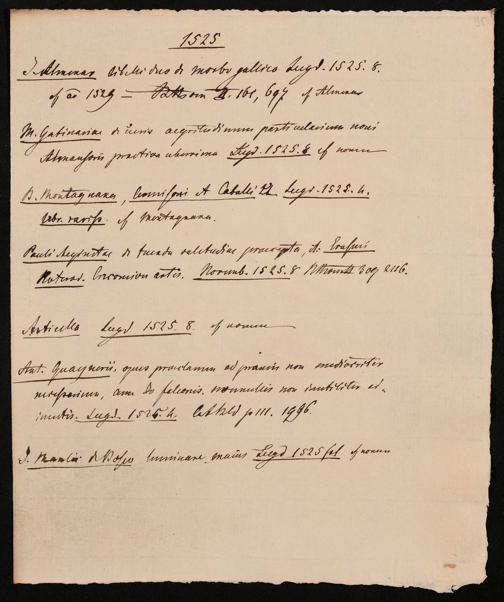 1525
J. Almenar libelli duo de morbo gallico Lugd. 1525. 8.
cf ad 1529 = II. 161, 697 cf Almenar
M. Gatinariae de curis aegritudinum particularium noni
Almansoris practica uberrima Lugd. 1525. 8 cf nomen
B. Montagnana, Lugd. 1525. 4.
cf Montagnana.
Pauli Aeginetae de tuenda valitudine praecepta, A. Erasmi
Roterod. Encomion artis. Norimb. 1525. 8
Articella Lugd 1525. 8. cf nomen
Ant. Guaynerii, opus praeclarum ad praxin non mediocriter
necessarium, cum Jo falconis nonnullis non inutiliter ad-
iunctis. Lugd. 1525. 4. p III. 1996.
J. Manlii de Bosco luminare maius Lugd 1525 fol cf nomen